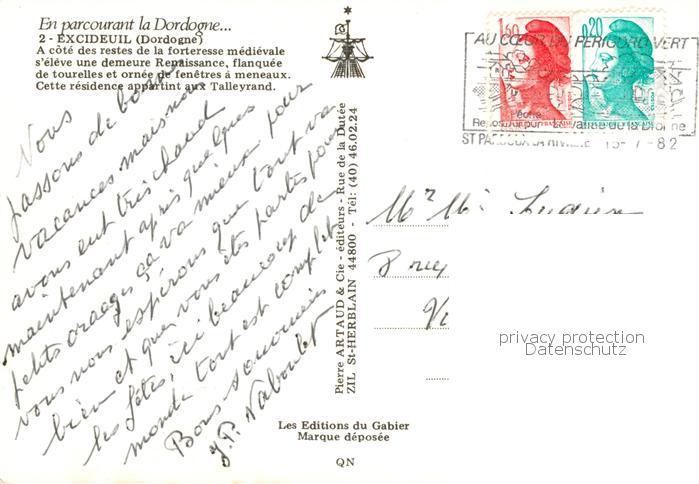 En parcourant la Dordogne...
2 - EXCIDEUIL (Dordogne)
A côté des restes de la forteresse médiévale
s'élève une demeure Renaissance, flanquée
de tourelles et ornée de fenêtres à meneaux.
Cette résidence appartint aux Talleyrand.
Nous
passons de bonnes
vacances mais nous
avons eut très chaud
maintenant après quelques
petits orages ça va mieux pour
vous nous espérons que tout va
bien et que vous êtes partis pour
les fêtes, ici beaucoup de
monde tout est complet
Bons souvenirs
J.P. Naboulet
Pierre ARTAUD & Cie - éditeurs - Rue de la Dutée
ZIL St-HERBLAIN 44800 - Tél: (40) 46.02.24
Les Editions du Gabier
Marque déposée
QN
1,60
0,20
AU CŒUR DU PÉRIGORD VERT
Vallée de la Dronne
15-7-82
privacy protection
Datenschutz